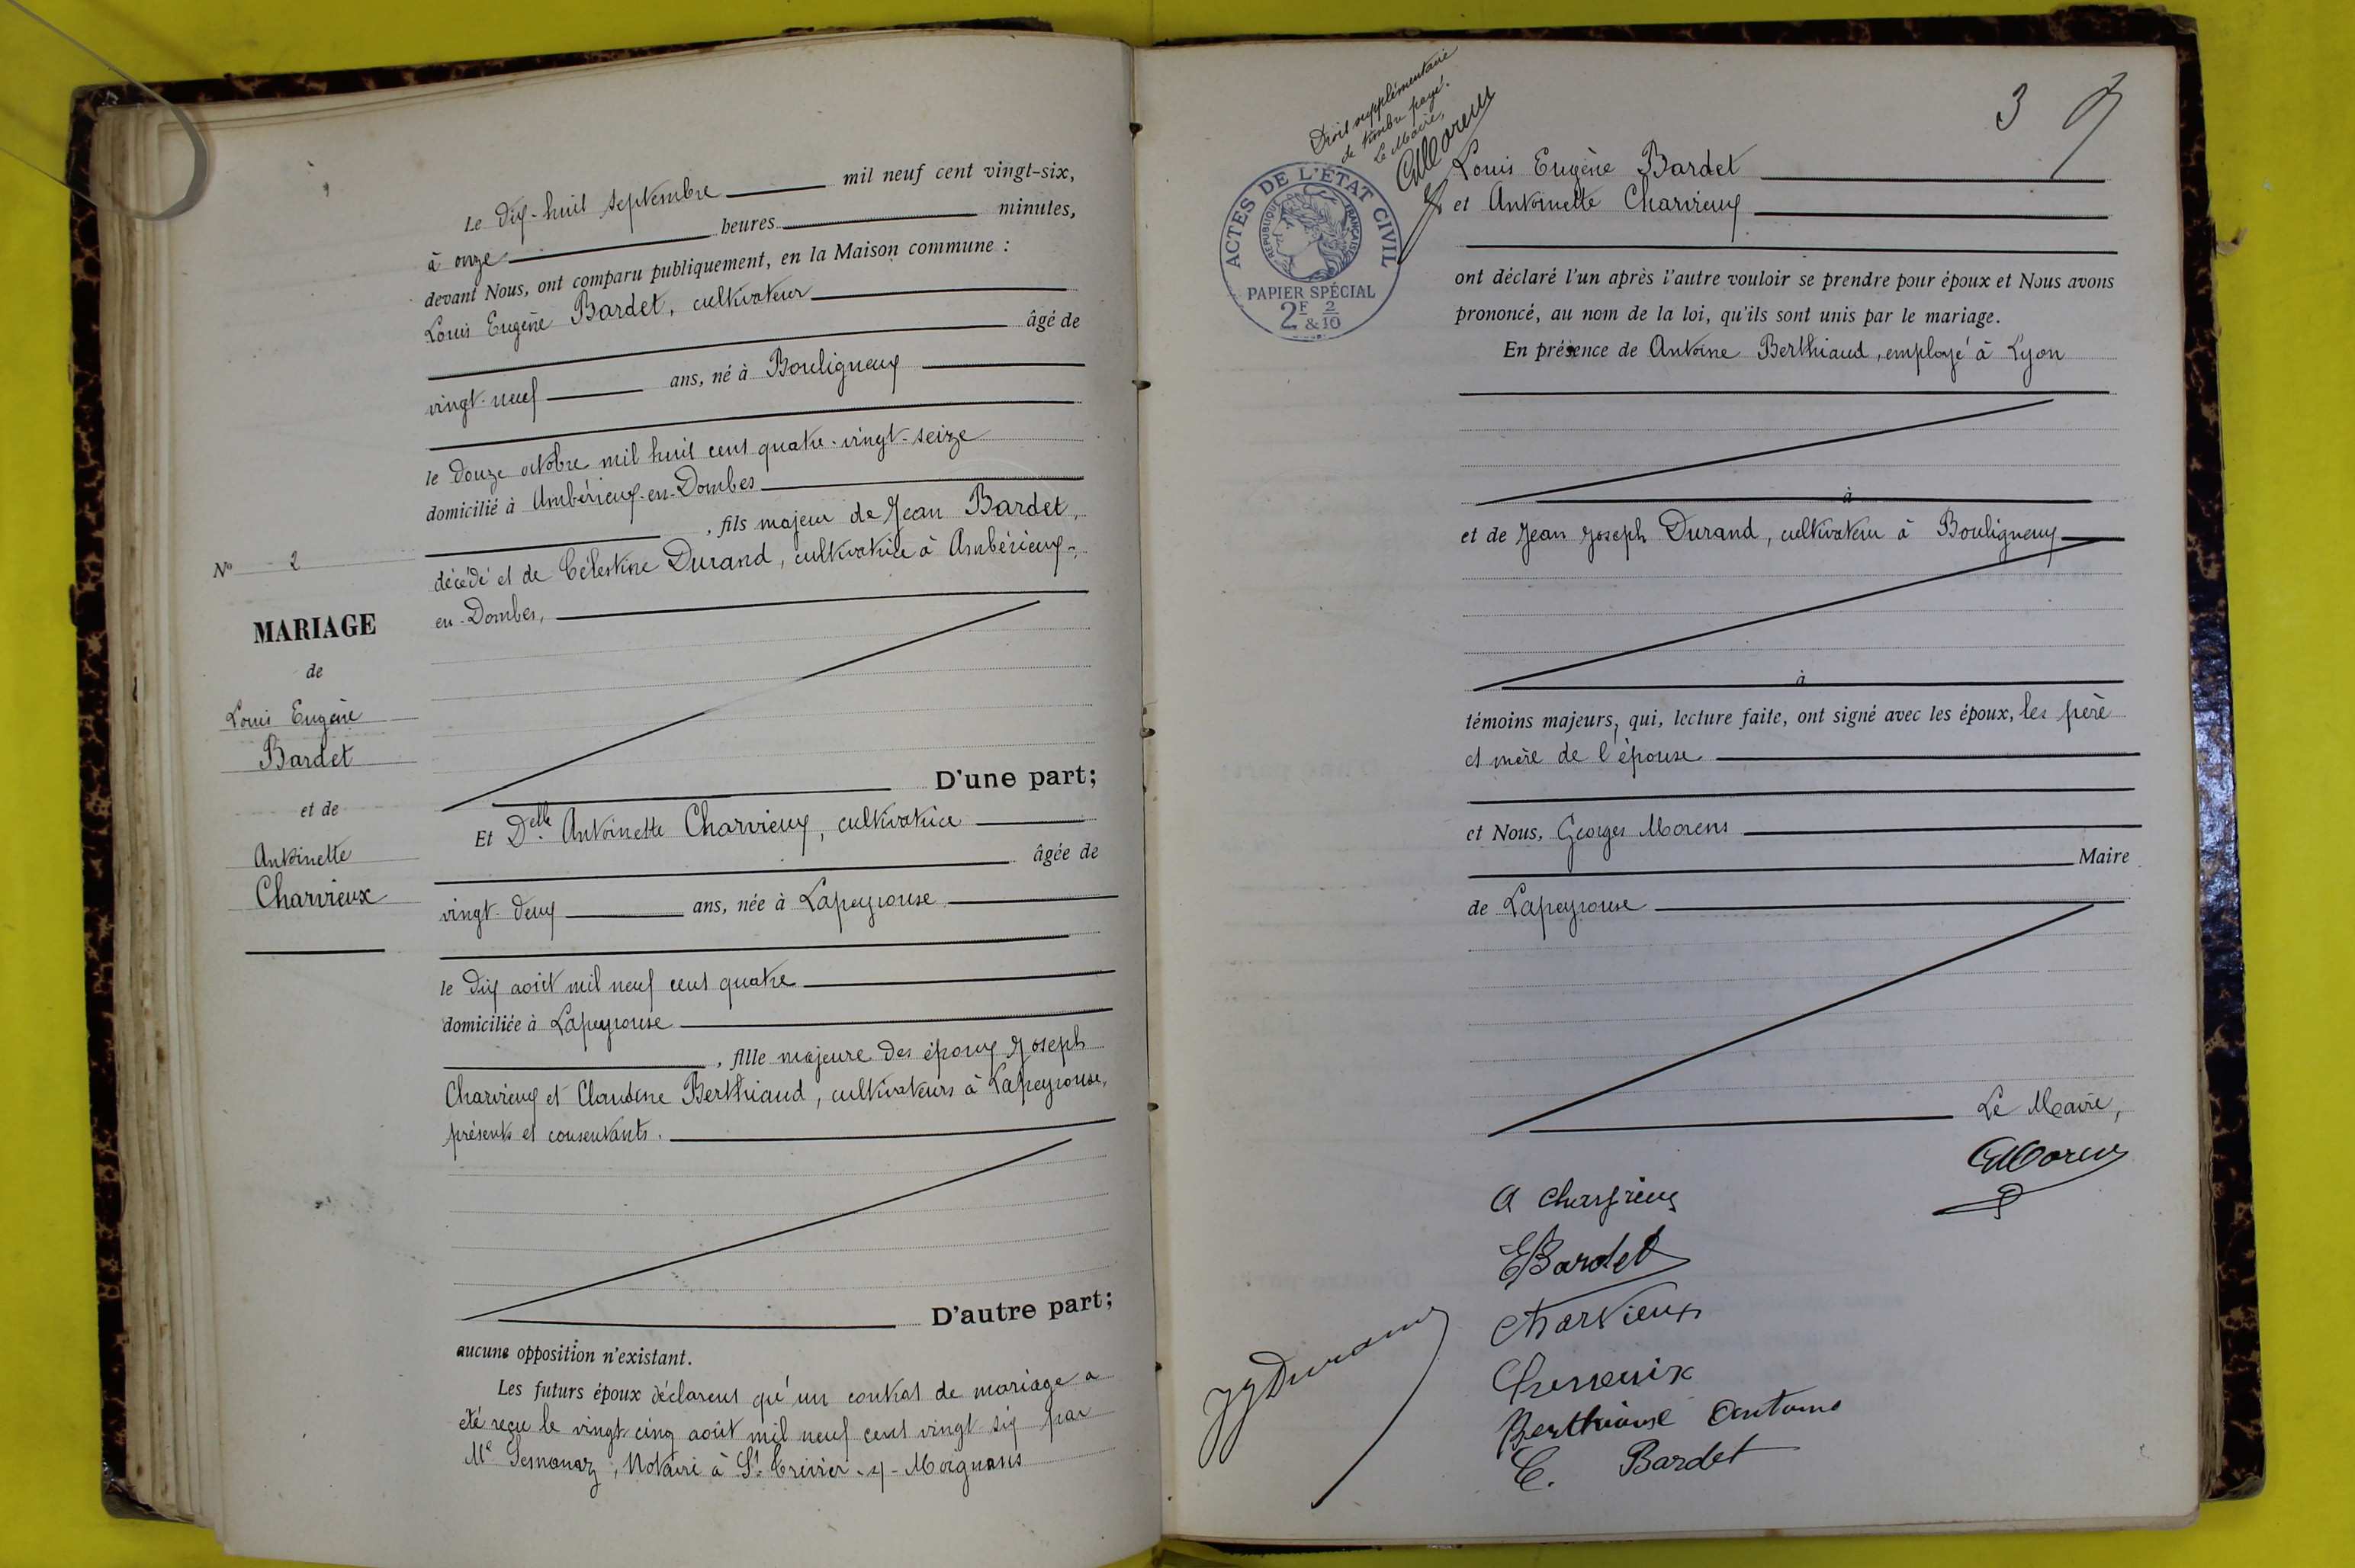 Le dix-huit septembre mil neuf cent vingt-six,
à onze heures minutes,
devant Nous, ont comparu publiquement, en la Maison commune :
Louis Eugène Bardet, cultivateur
âgé de
vingt-neuf ans, né à Bouligneux
le douze octobre mil huit cent quatre-vingt-seize
domicilié à Ambérieux-en-Dombes
, fils majeur de Jean Bardet,
décédé et de Célestine Durand, cultivatrice à Ambérieux-
en-Dombes,
D'une part;
Et Delle Antoinette Charvieux, cultivatrice
âgée de
vingt-deux ans, née à Lapeyrouse
le dix août mil neuf cent quatre
domiciliée à Lapeyrouse
, fille majeure des époux Joseph
Charvieux et Claudine Berthiaud, cultivateurs à Lapeyrouse,
présents et consentants.
D'autre part;
aucune opposition n'existant.
Les futurs époux déclarent qu'un contrat de mariage a
été reçu le vingt-cinq août mil neuf cent vingt-six par
Me, Notaire à St Trivier-s-Moignans
No 2
MARIAGE
de
Louis Eugène
Bardet
et de
Antoinette
Charvieux
3
Droit supplémentaire
de timbre payé.
Le Maire,
GMorens
ACTES DE L'ÉTAT CIVIL
RÉPUBLIQUE FRANÇAISE
PAPIER SPÉCIAL
2F & 2/10
Louis Eugène Bardet
et Antoinette Charvieux
ont déclaré l'un après l'autre vouloir se prendre pour époux et Nous avons
prononcé, au nom de la loi, qu'ils sont unis par le mariage.
En présence de Antoine Berthiaud, employé à Lyon
à
et de Jean Joseph Durand, cultivateur à Bouligneux
à
témoins majeurs, qui, lecture faite, ont signé avec les époux, les père
et mère de l'épouse
et Nous, Georges Morens
Maire
de Lapeyrouse
Le Maire,
GMorens
A Charvieux
EBardet
Charvieux
Berthiaud Antoine
C. Bardet
JJDurand